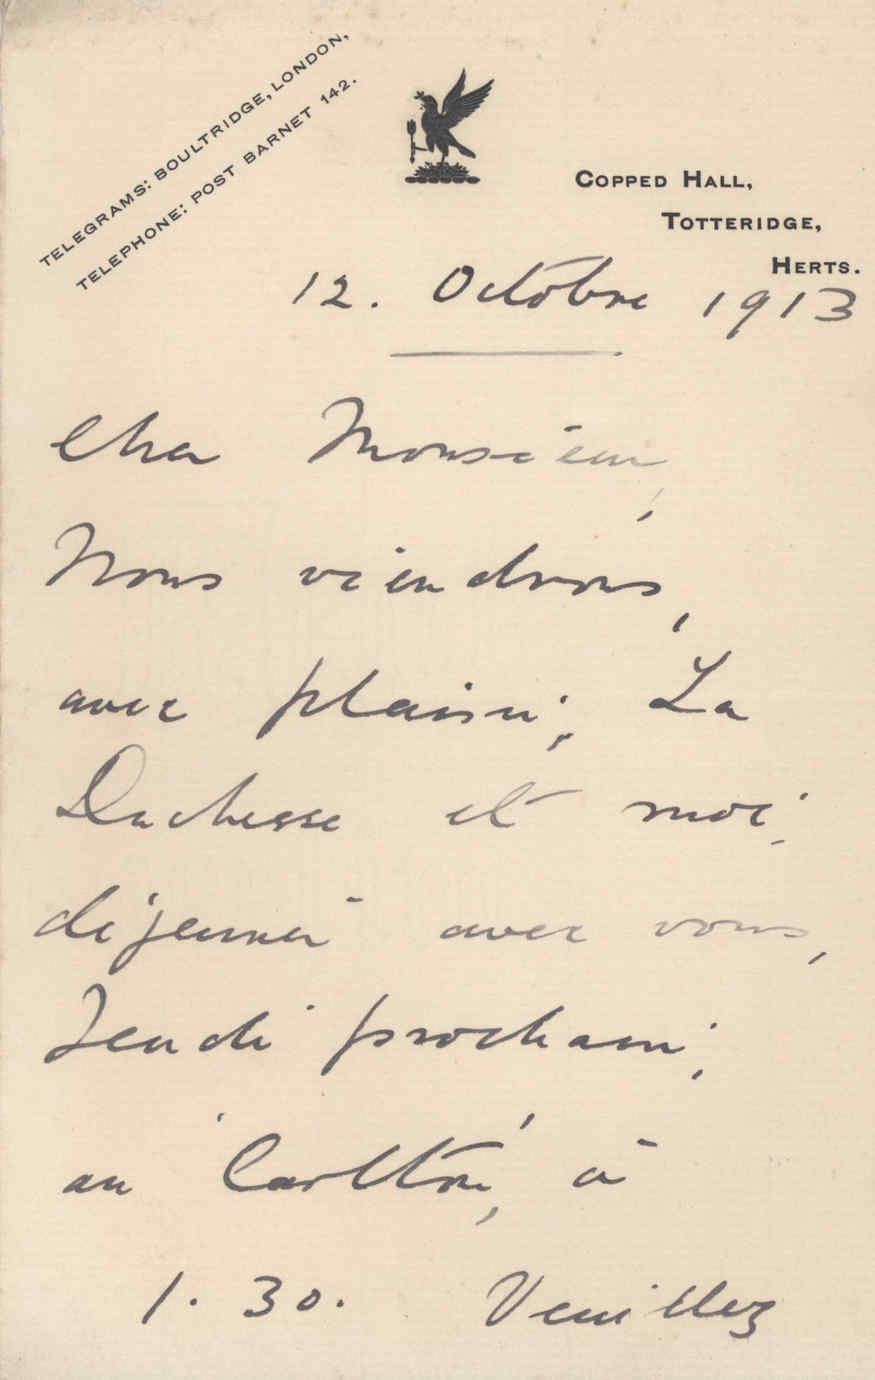 TELEGRAMS: BOULTRIDGE, LONDON,
TELEPHONE: POST BARNET 142.
COPPED HALL,
TOTTERIDGE,
HERTS.
12. Octobre 1913
Cher Monsieur,
Nous viendrons,
avec plaisir, La
Duchesse et moi,
déjeuner avec vous,
Jeudi prochain,
au 'Carlton', à
1.30. Veuillez